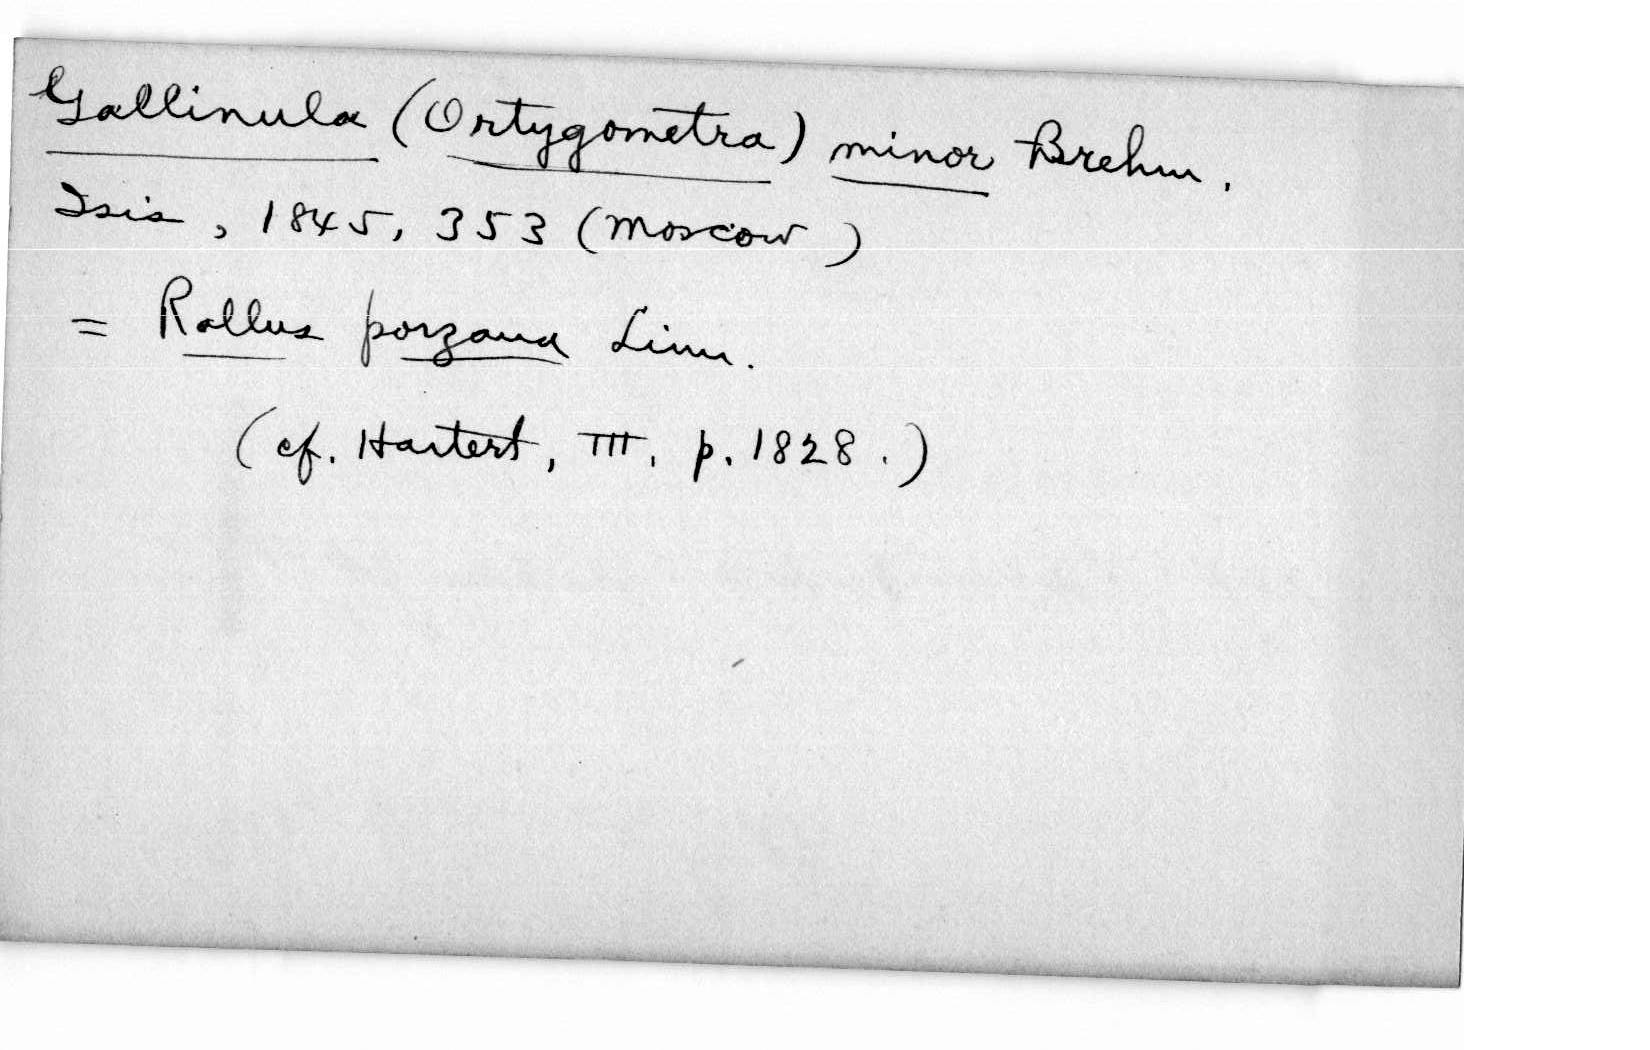 Gallinula (Ortygometra) minor Brehm.
Isis, 1845, 353 (Moscow)
= Rallus porzana Linn.
(cf. Hartert, III, p. 1828.)